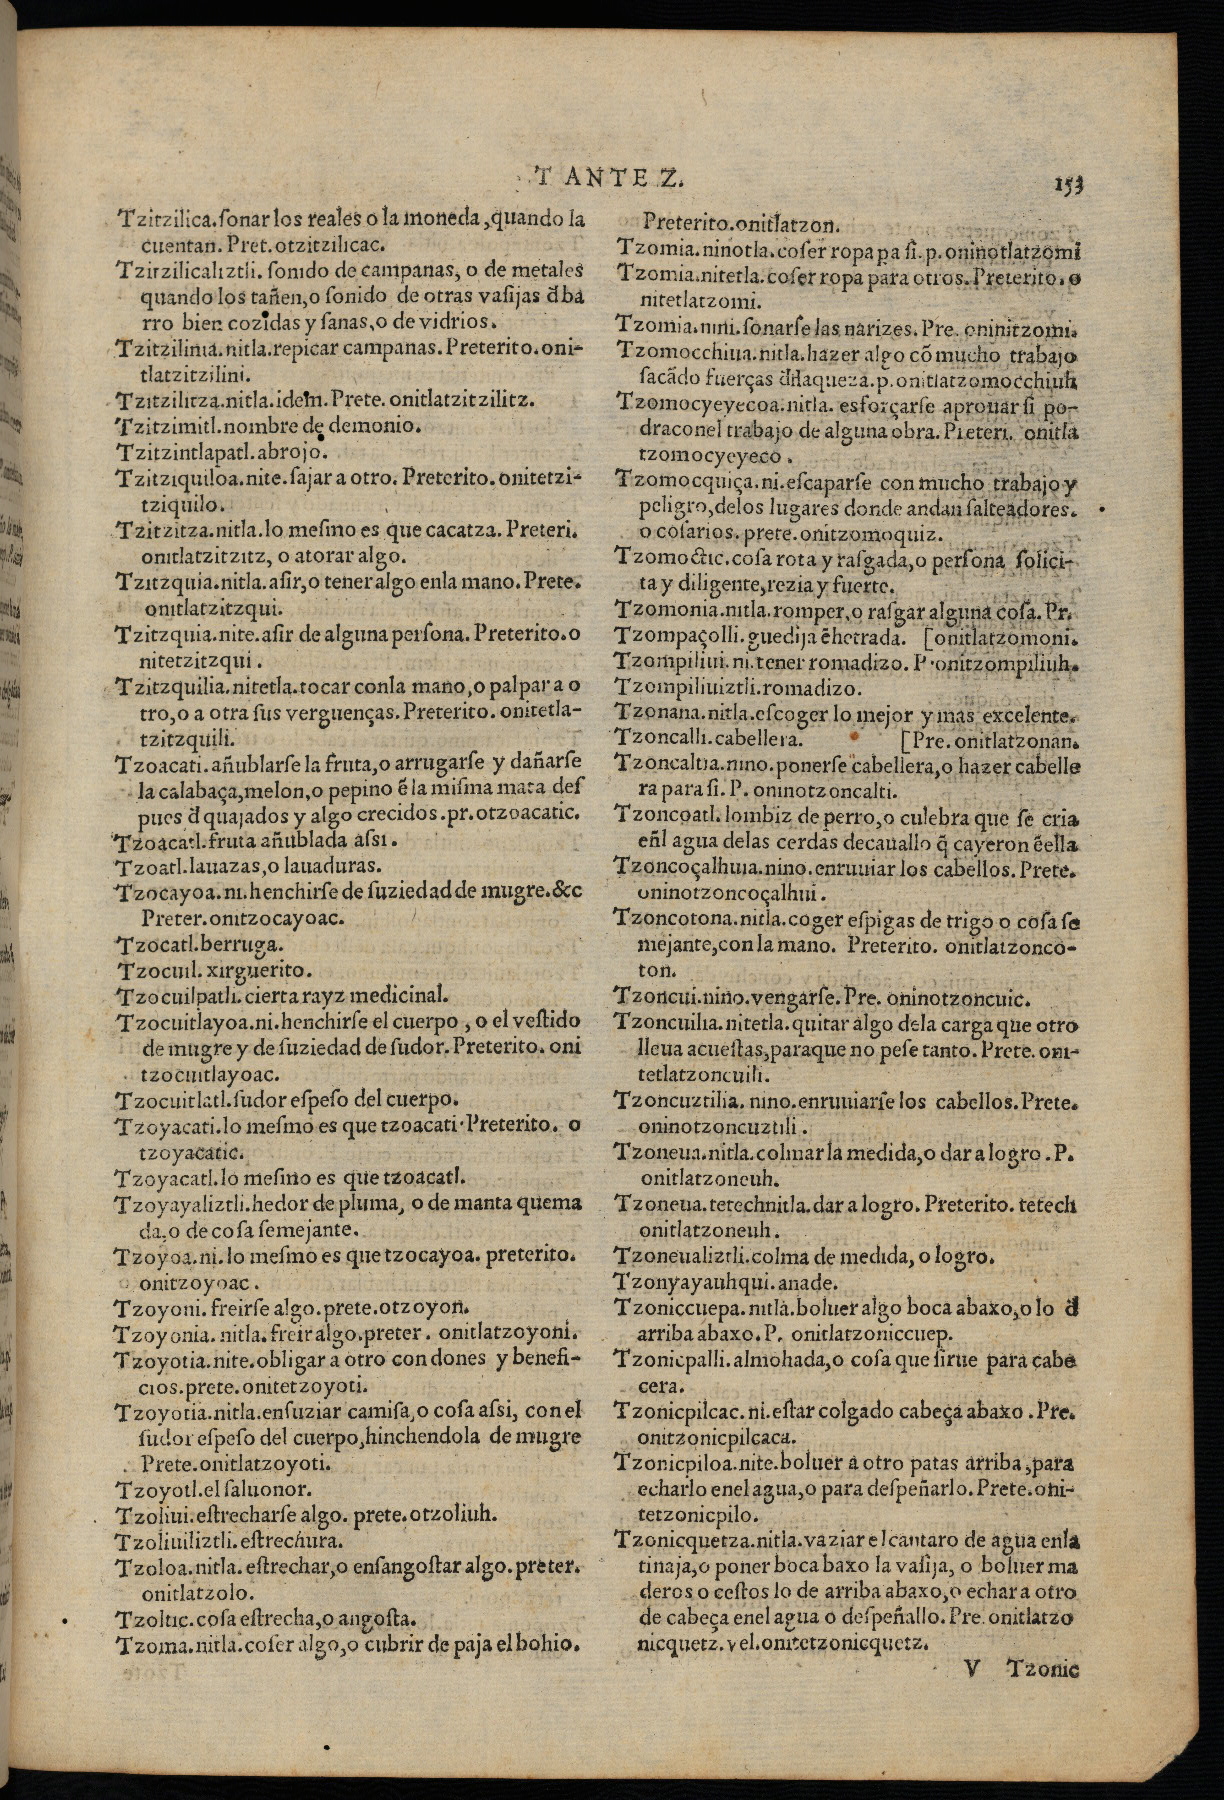 T ANTE Z.
153
Tzitzilica.ſonar los reales o la moneda,quando la
cuentan. Pret.otzitzilicac.
Tzitzilicaliztli. ſonido de campanas, o de metales
quando los tañen,o ſonido de otras vaſijas d̃ ba
rro bien cozidas y ſanas,o de vidrios.
Tzitzilinia.nitla.repicar campanas. Preterito.oni-
tlatzitzilini.
Tzitzilitza.nitla.idem. Prete. onitlatzitzilitz.
Tzitzimitl.nombre de demonio.
Tzitzintlapatl.abrojo.
Tzitziquiloa.nite.ſajar a otro. Preterito.onitetzi-
tziquilo.
Tzitzitza.nitla.lo meſmo es que cacatza. Preteri.
onitlatzitzitz, o atorar algo.
Tzitzquia.nitla.aſir,o tener algo enla mano. Prete.
onitlatzitzqui.
Tzitzquia.nite.aſir de alguna perſona. Preterito.o
nitetzitzqui.
Tzitzquilia.nitetla.tocar conla mano,o palpar a o
tro,o a otra ſus verguenças. Preterito. onitetla-
tzitzquili.
Tzoacati.añublarſe la fruta,o arrugarſe y dañarſe
la calabaça,melon,o pepino ẽ la miſma mata deſ
pues d̃ quajados y algo crecidos.pr.otzoacatic.
Tzoacatl.fruta añublada aſsi.
Tzoatl.lauazas,o lauaduras.
Tzocayoa.ni.henchirſe de ſuziedad de mugre.&c
Preter.onitzocayoac.
Tzocatl.berruga.
Tzocuil.xirguerito.
Tzocuilpatli.cierta rayz medicinal.
Tzocuitlayoa.ni.henchirſe el cuerpo , o el veſtido
de mugre y de ſuziedad de ſudor. Preterito. oni
tzocuitlayoac.
Tzocuitlatl.ſudor eſpeſo del cuerpo.
Tzoyacati.lo meſmo es que tzoacati. Preterito. o
tzoyacatic.
Tzoyacatl.lo meſmo es que tzoacatl.
Tzoyayaliztli.hedor de pluma, o de manta quema
da,o de coſa ſemejante.
Tzoyoa.ni.lo meſmo es que tzocayoa. preterito.
onitzoyoac.
Tzoyoni. freirſe algo.prete.otzoyon.
Tzoyonia. nitla.freir algo.preter. onitlatzoyoni.
Tzoyotia.nite.obligar a otro con dones y benefi-
cios.prete.onitetzoyoti.
Tzoyotia.nitla.enſuziar camiſa,o coſa aſsi, con el
ſudor eſpeſo del cuerpo,hinchendola de mugre
Prete.onitlatzoyoti.
Tzoyotl.el ſaluonor.
Tzoliui.eſtrecharſe algo. prete.otzoliuh.
Tzoliuiliztli.eſtrechura.
Tzoloa.nitla.eſtrechar,o enſangoſtar algo.preter.
onitlatzolo.
Tzoltic.coſa eſtrecha,o angoſta.
Tzoma.nitla.coſer algo,o cubrir de paja el bohio.
Preterito.onitlatzon.
Tzomia.ninotla.coſer ropa pa ſi.p.oninotlatzomi
Tzomia.nitetla.coſer ropa para otros. Preterito.o
nitetlatzomi.
Tzomia.nini.ſonarſe las narizes. Pre. oninitzomi.
Tzomocchiua.nitla.hazer algo cõ mucho trabajo
ſacãdo fuerças d̃ flaqueza.p.onitlatzomocchiuh
Tzomocyeyecoa.nitla. esforçarſe aprouar ſi po-
dra con el trabajo de alguna obra. Preteri. onitla
tzomocyeyeco.
Tzomocquiça.ni.eſcaparſe con mucho trabajo y
peligro,delos lugares donde andan ſalteadores.
o coſarios.prete.onitzomoquiz.
Tzomoctic.coſa rota y raſgada,o perſona ſolici-
ta y diligente,rezia y fuerte.
Tzomonia.nitla.romper,o raſgar alguna coſa. Pr.
Tzompaçolli.guedija ẽhetrada. [onitlatzomoni.
Tzompiliui.ni.tener romadizo. P.onitzompiliuh.
Tzompiliuiztli.romadizo.
Tzonana.nitla.eſcoger lo mejor y mas excelente.
Tzoncalli.cabellera. [Pre.onitlatzonan.
Tzoncaltia.nino.ponerſe cabellera,o hazer cabelle
ra para ſi. P. oninotzoncalti.
Tzoncoatl.lombiz de perro,o culebra que ſe cria
eñl agua delas cerdas de cauallo q̃ cayeron ẽella
Tzoncoçalhuia.nino.enruuiar los cabellos. Prete.
oninotzoncoçalhui.
Tzoncotona.nitla.coger eſpigas de trigo o coſa ſe
mejante,con la mano. Preterito. onitlatzonco-
ton.
Tzoncui.nino.vengarſe. Pre. oninotzoncuic.
Tzoncuilia.nitetla.quitar algo dela carga que otro
lleua acueſtas,para que no peſe tanto. Prete. oni-
tetlatzoncuili.
Tzoncuztilia. nino.enruuiarſe los cabellos. Prete.
oninotzoncuztili.
Tzoneua.nitla.colmar la medida,o dar a logro. P.
onitlatzoneuh.
Tzoneua.tetechnitla.dar a logro. Preterito. tetech
onitlatzoneuh.
Tzoneualiztli.colma de medida, o logro.
Tzonyayauhqui.anade.
Tzoniccuepa.nitla.boluer algo boca abaxo,o lo d̃
arriba abaxo. P. onitlatzoniccuep.
Tzonicpalli.almohada,o coſa que ſirue para cabe
cera.
Tzonicpilcac.ni.eſtar colgado cabeça abaxo. Pre.
onitzonicpilcaca.
Tzonicpiloa.nite.boluer a otro patas arriba,para
echarlo enel agua,o para deſpeñarlo. Prete.oni-
tetzonicpilo.
Tzonicquetza.nitla.vaziar el cantaro de agua enla
tinaja,o poner boca baxo la vaſija, o boluer ma
deros o ceſtos lo de arriba abaxo,o echar a otro
de cabeça enel agua o deſpeñallo. Pre.onitlatzo
nicquetz.vel.onitetzonicquetz.
V Tzonic